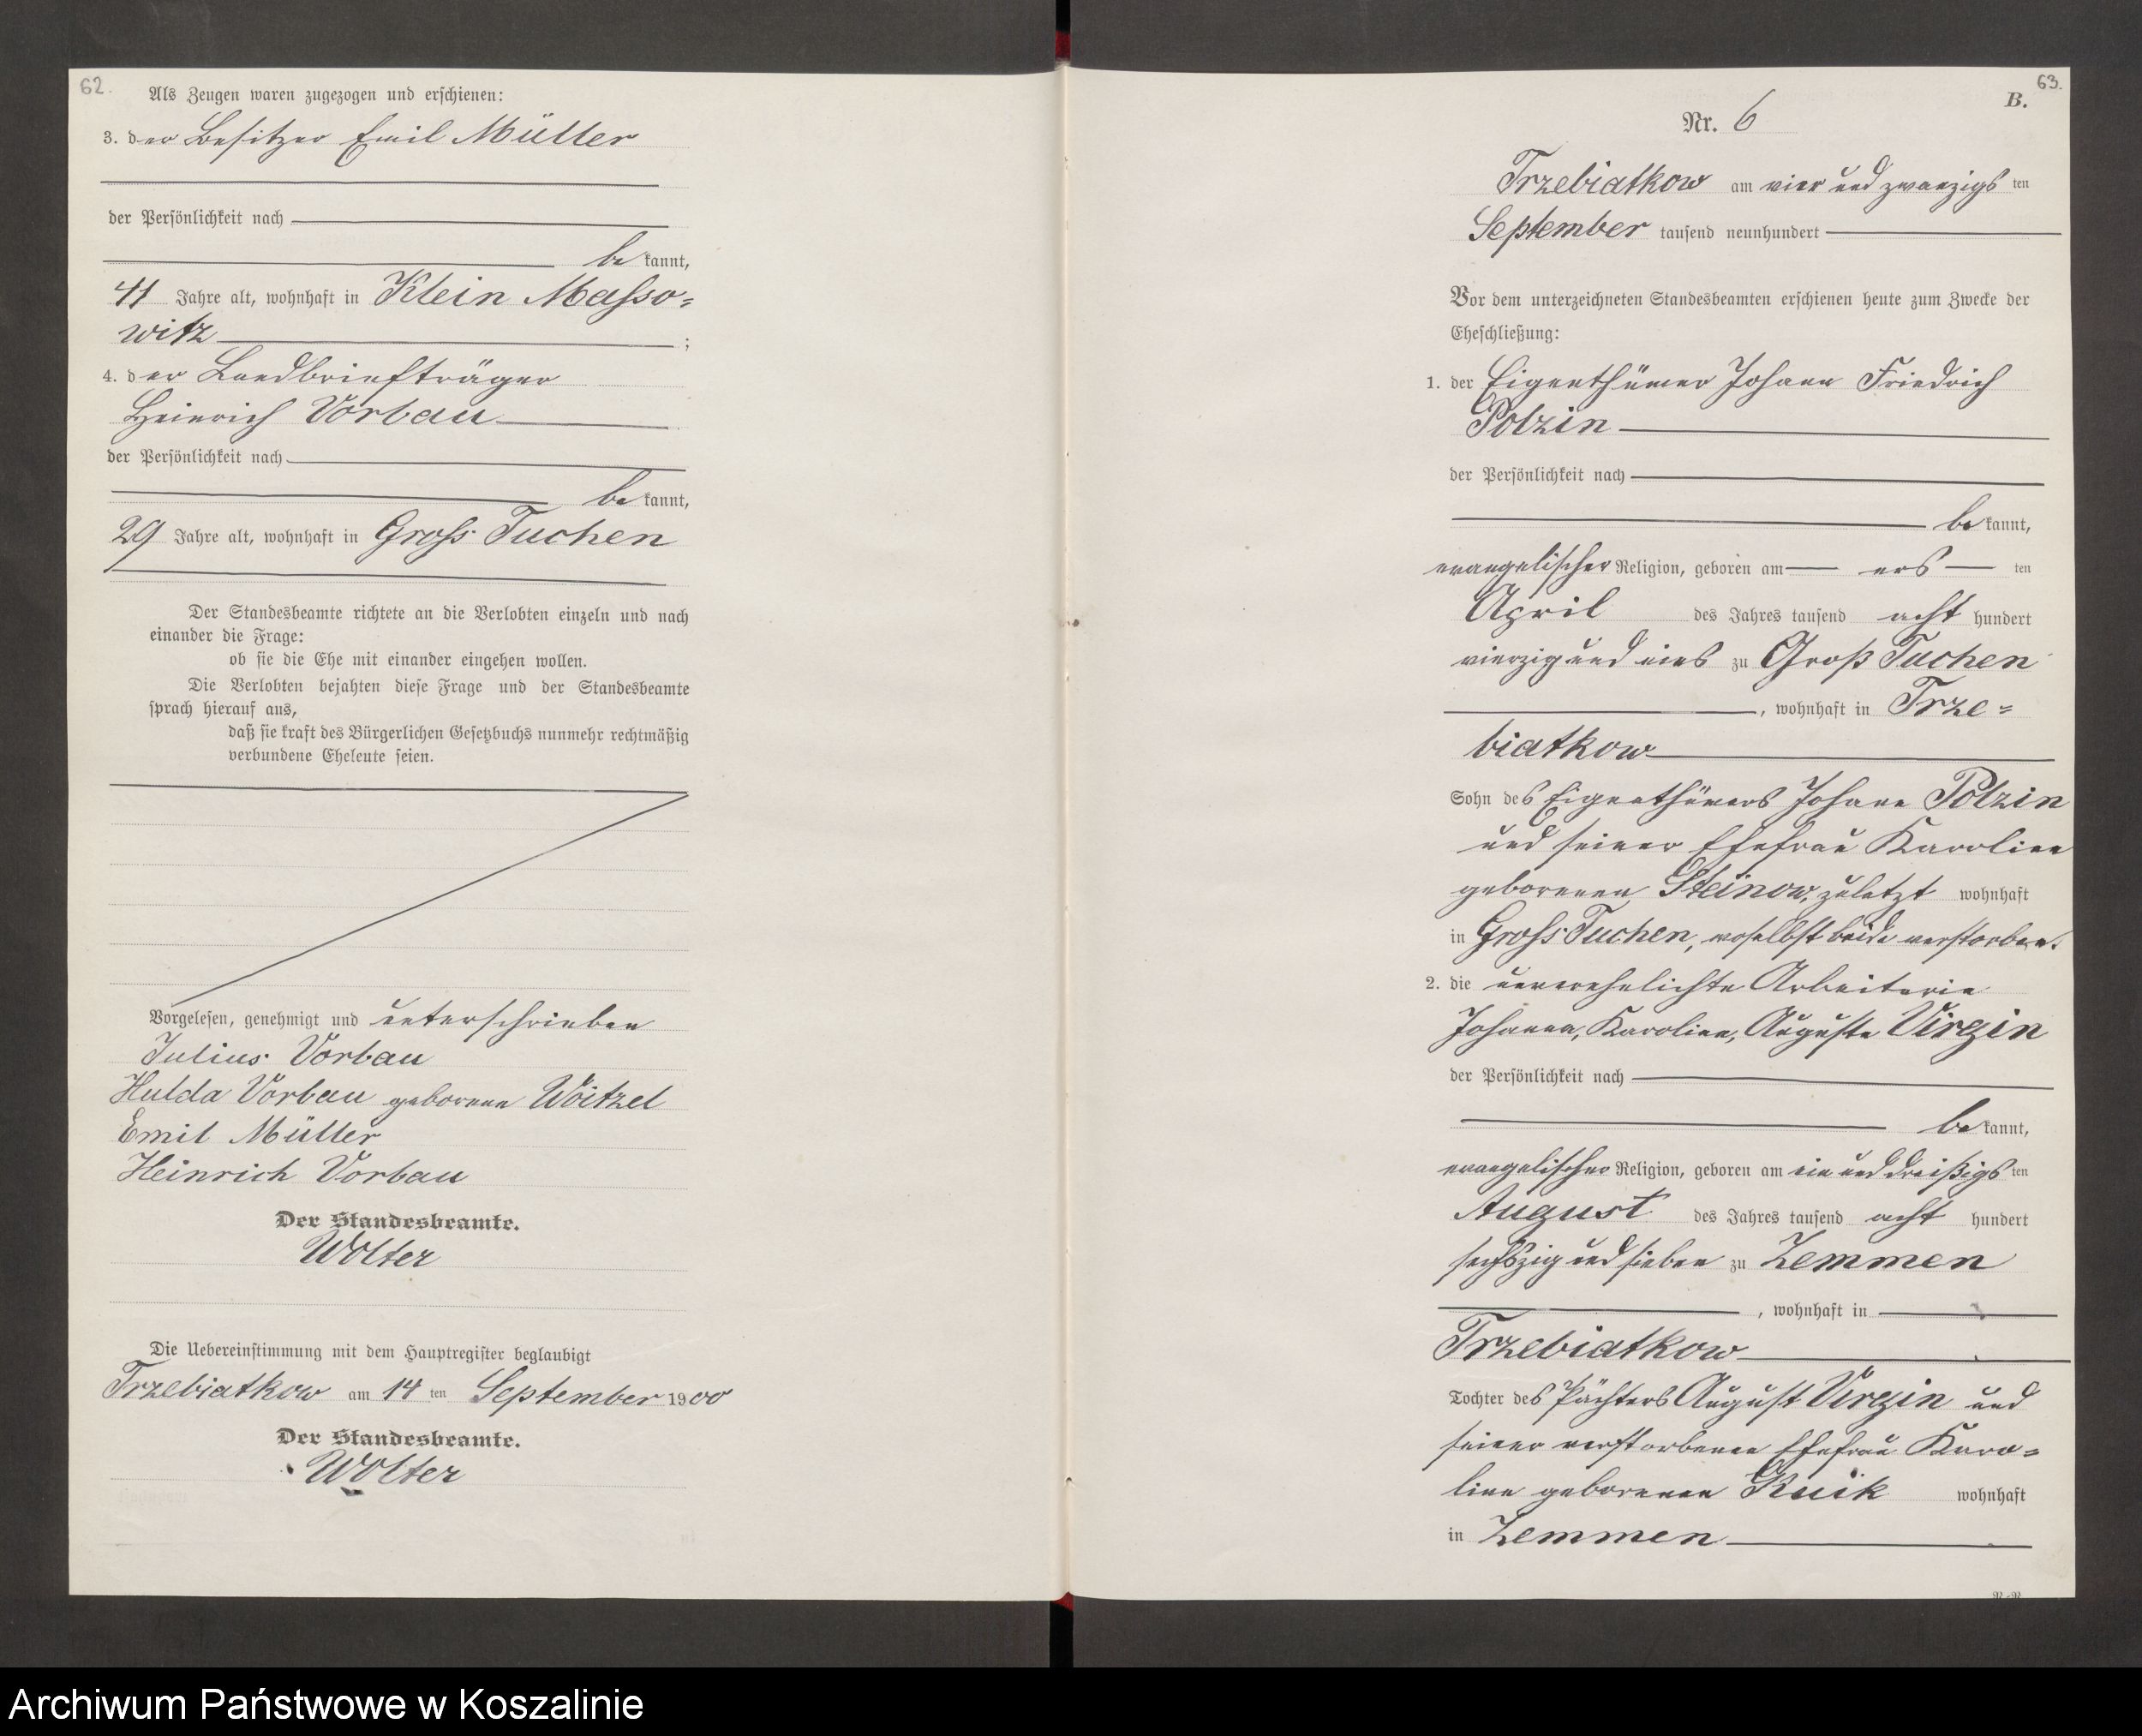 62.
Als Zeugen waren zugezogen und erschienen:
3. der Besitzer Emil Müller
der Persönlichkeit nach
be kannt,
41 Jahre alt, wohnhaft in Klein Masso=
witz ;
4. der Landbriefträger
Heinrich Vorbau
der Persönlichkeit nach
be kannt,
29 Jahre alt, wohnhaft in Gross Tuchen
Der Standesbeamte richtete an die Verlobten einzeln und nach
einander die Frage:
ob sie die Ehe mit einander eingehen wollen.
Die Verlobten bejahten diese Frage und der Standesbeamte
sprach hierauf aus,
daß sie kraft des Bürgerlichen Gesetzbuchs nunmehr rechtmäßig
verbundene Eheleute seien.
Vorgelesen, genehmigt und unterschrieben
Julius Vorbau
Hulda Vorbau geborene Woitzel
Emil Müller
Heinrich Vorbau
Der Standesbeamte.
Wolter
Die Uebereinstimmung mit dem Hauptregister beglaubigt
Trzebiatkow am 14 ten September 1900
Der Standesbeamte.
Wolter
63.
B.
Nr. 6
Trzebiatkow am vier und zwanzigs ten
September tausend neunhundert
Vor dem unterzeichneten Standesbeamten erschienen heute zum Zwecke der
Eheschließung:
1. der Eigenthümer Johann Friedrich
Polzin
der Persönlichkeit nach
be kannt,
evangelischer Religion, geboren am ers ten
April des Jahres tausend acht hundert
vierzig und eins zu Groß Tuchen
, wohnhaft in Trze=
biatkow
Sohn des Eigenthümers Johann Polzin
und seiner Ehefrau Karoline
geborenen Steinow, zuletzt wohnhaft
in Gross Tuchen, woselbst beide verstorben.
2. die unverehelichte Arbeiterin
Johanna, Karoline, Auguste Virgin
der Persönlichkeit nach
be kannt,
evangelischer Religion, geboren am ein und dreißigs ten
August des Jahres tausend acht hundert
sechszig und sieben zu Zemmen
, wohnhaft in
Trzebiatkow
Tochter des Pächters August Virgin und
seiner verstorbenen Ehefrau Karo=
line geborenen Kuik wohnhaft
in Zemmen
Archiwum Państwowe w Koszalinie